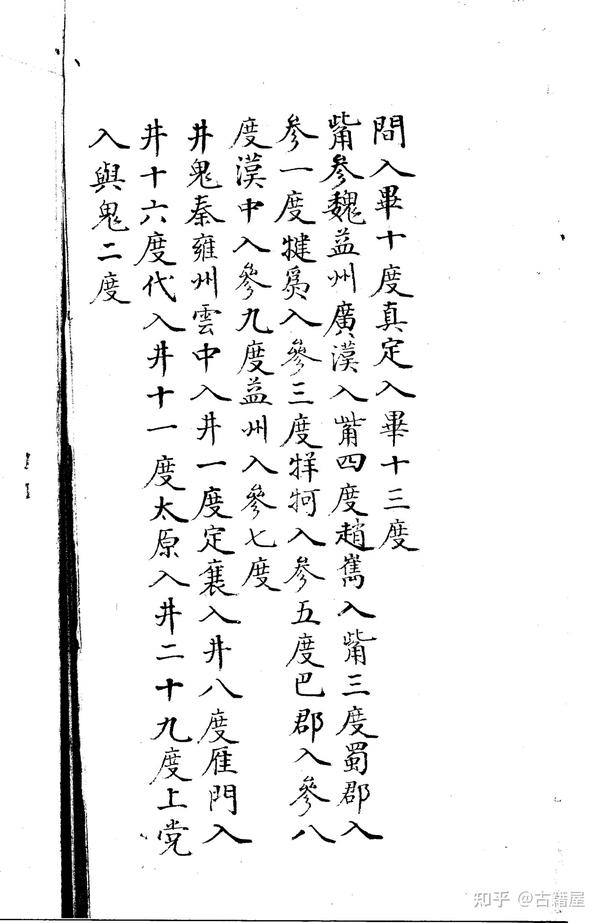 間入畢十度真定入畢十三度
觜參魏益州廣漢入觜四度趙雋入觜三度蜀郡入
參一度犍爲入參三度牂牁入參五度巴郡入參八
度漢中入參九度益州入參七度
井鬼秦雍州雲中入井一度定襄入井八度雁門入
井十六度代入井十一度太原入井二十九度上党
入與鬼二度
知乎 @古籍屋